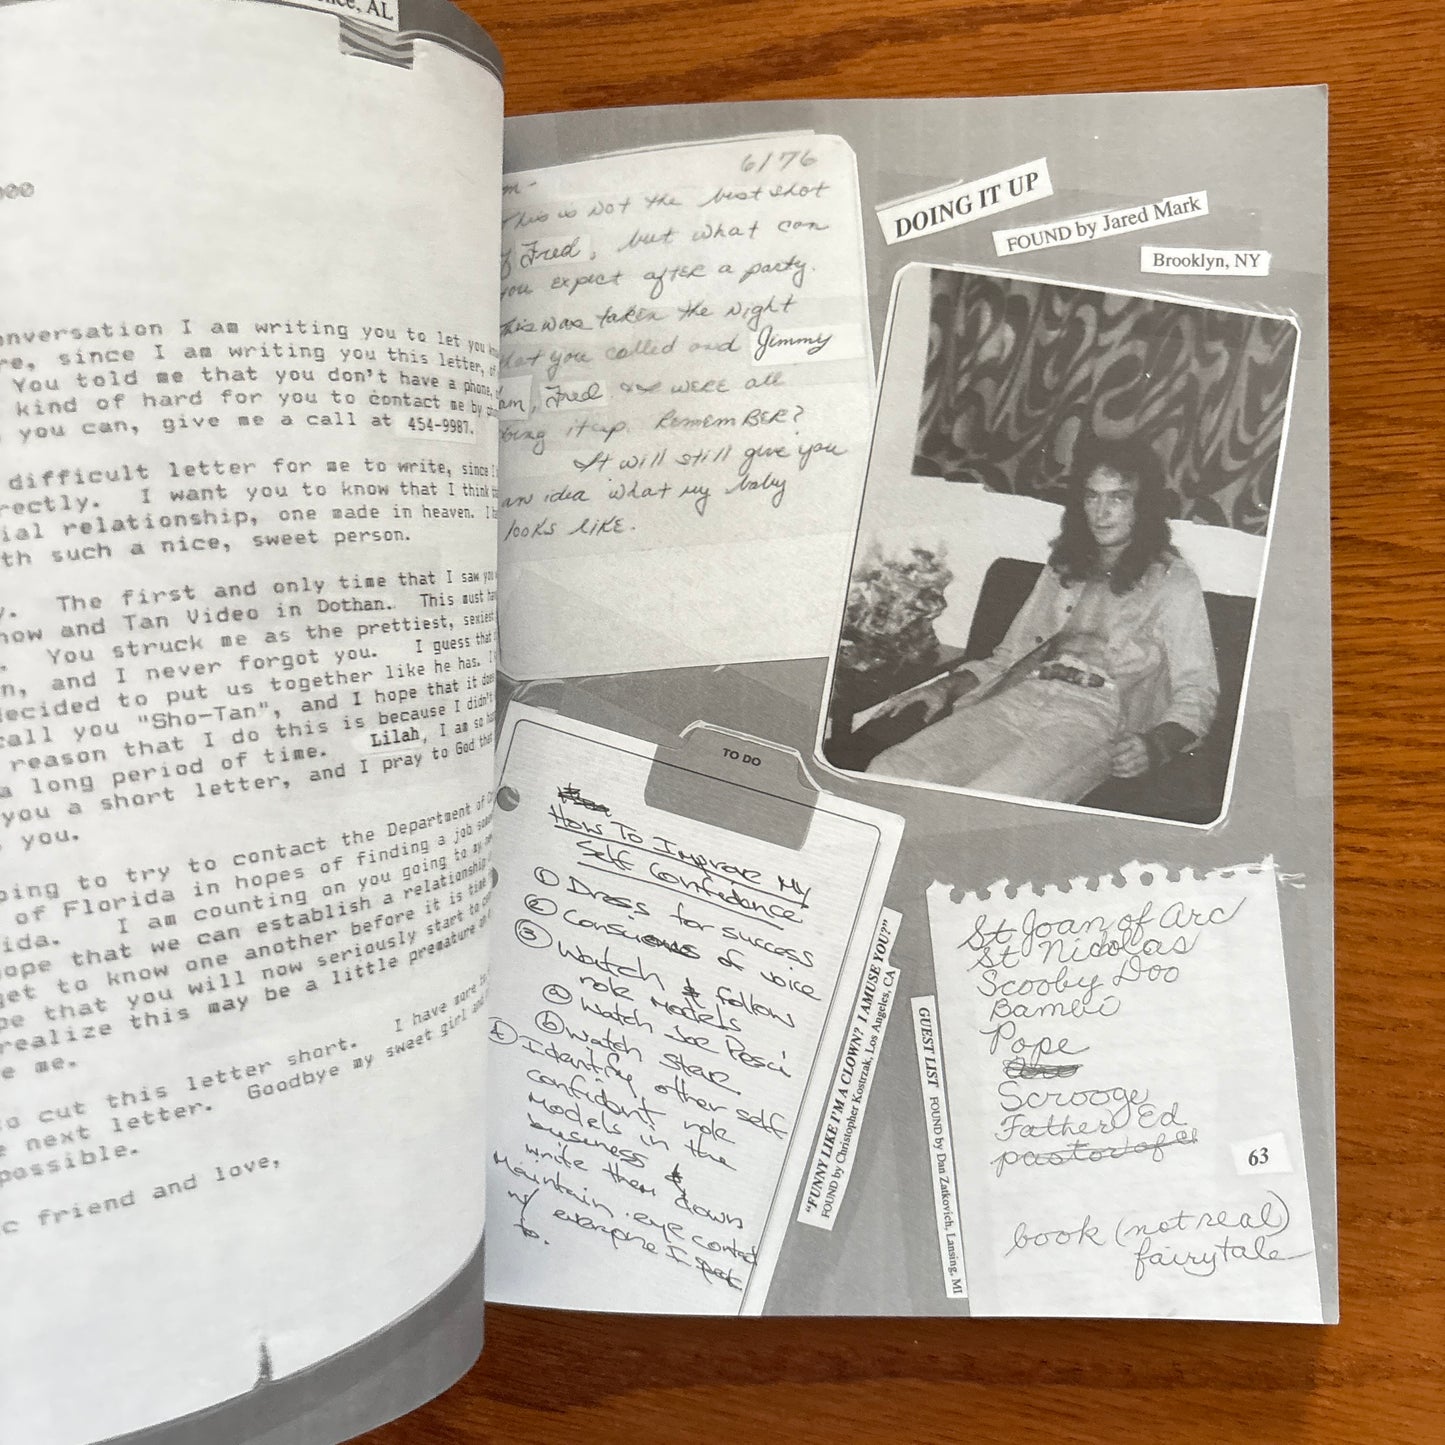 AL
onversation I am writing you to let you
re, since I am writing you this letter,
You told me that you don't have a phone,
kind of hard for you to contact me by
you can, give me a call at 454-9987.
difficult letter for me to write, since
rectly. I want you to know that I think
ial relationship, one made in heaven. I
th such a nice, sweet person.
y. The first and only time that I saw you
how and Tan Video in Dothan. This must
You struck me as the prettiest, sexiest
n, and I never forgot you. I guess that
decided to put us together like he has.
call you "Sho-Tan", and I hope that it does
reason that I do this is because I didn't
a long period of time. Lilah, I am so
you a short letter, and I pray to God that
you.
oing to try to contact the Department of
of Florida in hopes of finding a job
ida. I am counting on you going to my
ope that we can establish a relationship
get to know one another before it is
pe that you will now seriously start to
realize this may be a little premature
e me.
to cut this letter short. I have more
e next letter. Goodbye my sweet girl and
possible.
c friend and love,
6/76
m-
This is not the best shot
of Fred, but what can
you expect after a party.
This was taken the night
that you called and Jimmy
am, Fred and I were all
doing it up. Remember?
It will still give you
an idea what my baby
looks like.
DOING IT UP
FOUND by Jared Mark
Brooklyn, NY
TO DO
How To Improve My
Self Confidance
① Dress for success
② Conscious of voice
③ Watch & follow
role models
ⓐ watch Joe Pesci
ⓑ watch
④ Identify other self
confidant role
models in the
business &
write them down
Maintain eye contact
w/ everyone I speak
to.
"FUNNY LIKE I'M A CLOWN? I AMUSE YOU?"
FOUND by Christopher Kostrzak, Los Angeles, CA
GUEST LIST FOUND by Dan Zatkovich, Lansing, MI
St Joan of Arc
St Nicolas
Scooby Doo
Bambi
Pope
Scrooge
Father Ed
pastor of
63
book (not real)
fairytale